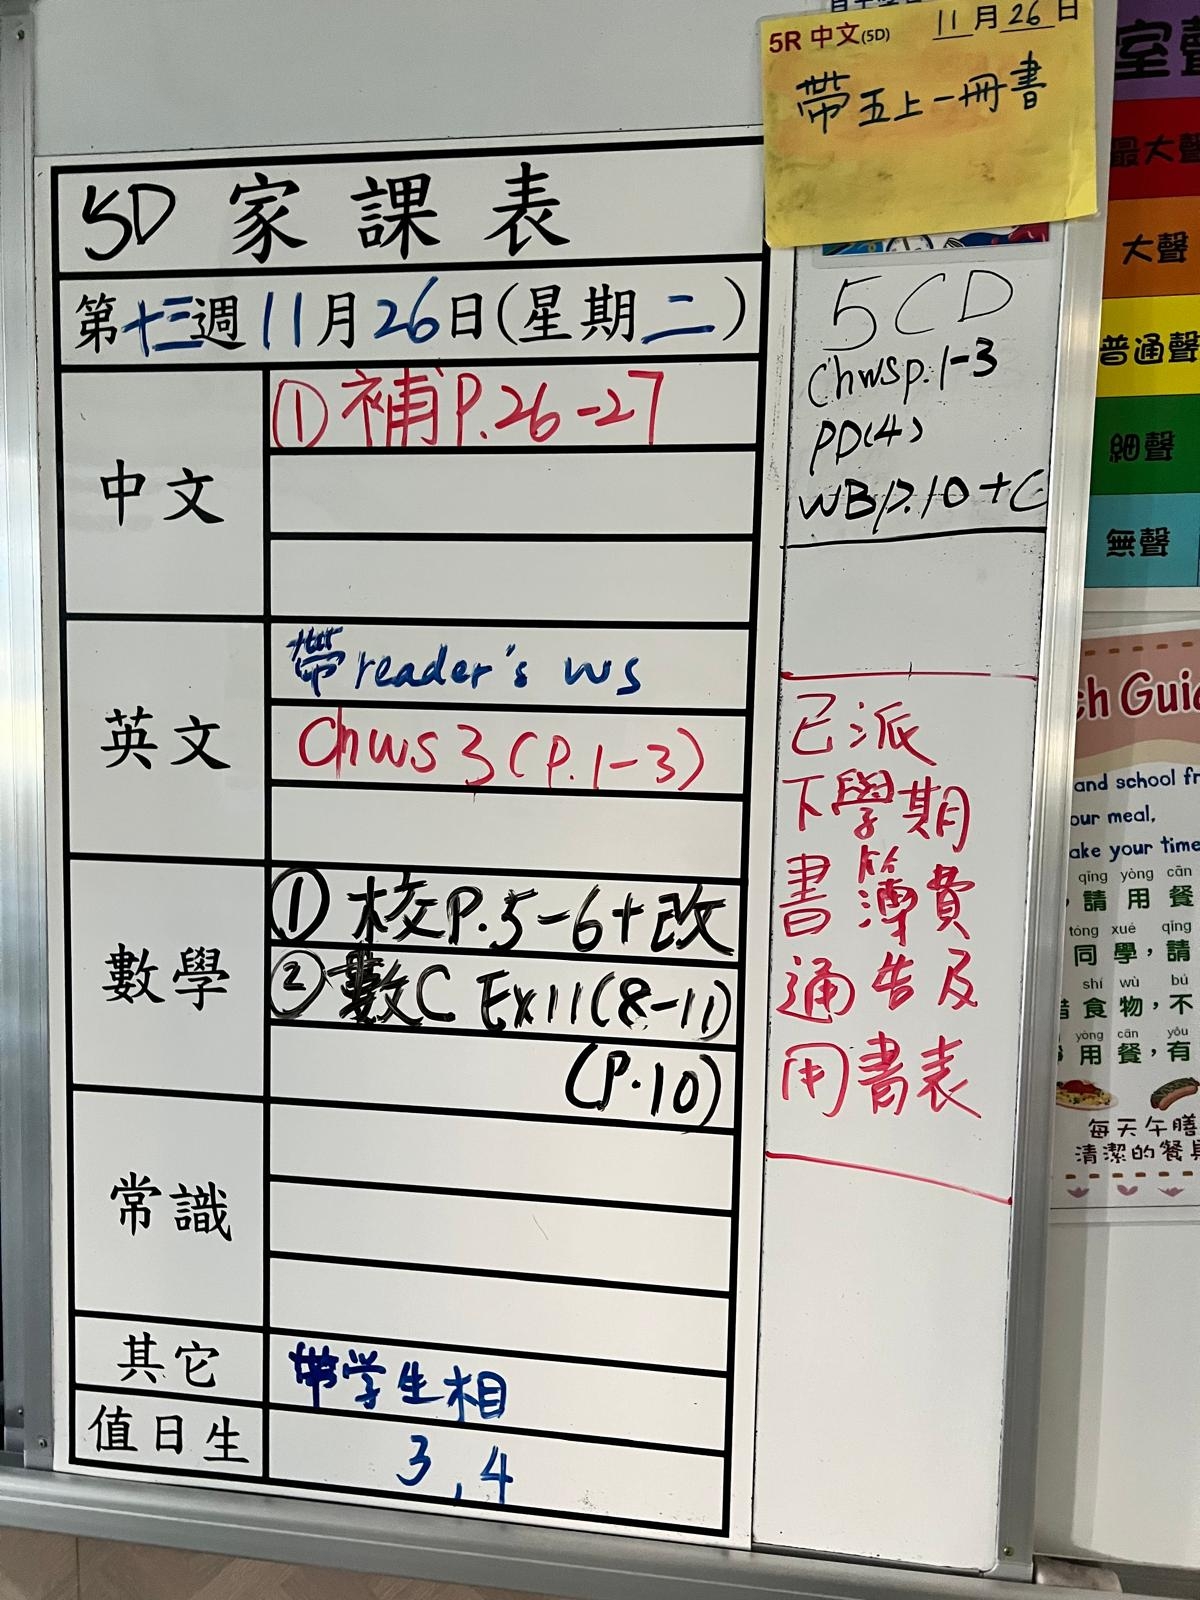 5R 中文(5D) 11月26日
帶五上一冊書
5D 家課表
第十三週11月26日(星期二)
中文
①補P.26-27
英文
帶reader's ws
Chws 3(P.1-3)
數學
①校P.5-6+改
②數C Ex11(8-11)
(P.10)
常識
其它
帶学生相
值日生
3,4
5CD
Chwsp.1-3
PD(4)
WBp.10+C
已派
下學期
書簿費
通告及
用書表
最大聲
大聲
普通聲
細聲
無聲
and school
our meal,
ake your time
qǐng yòng cān
請用餐
tóng xué qǐng
同學,請
shí wù bù
食物,不
yòng cān yǒu
用餐,有
每天午膳
清潔的餐具